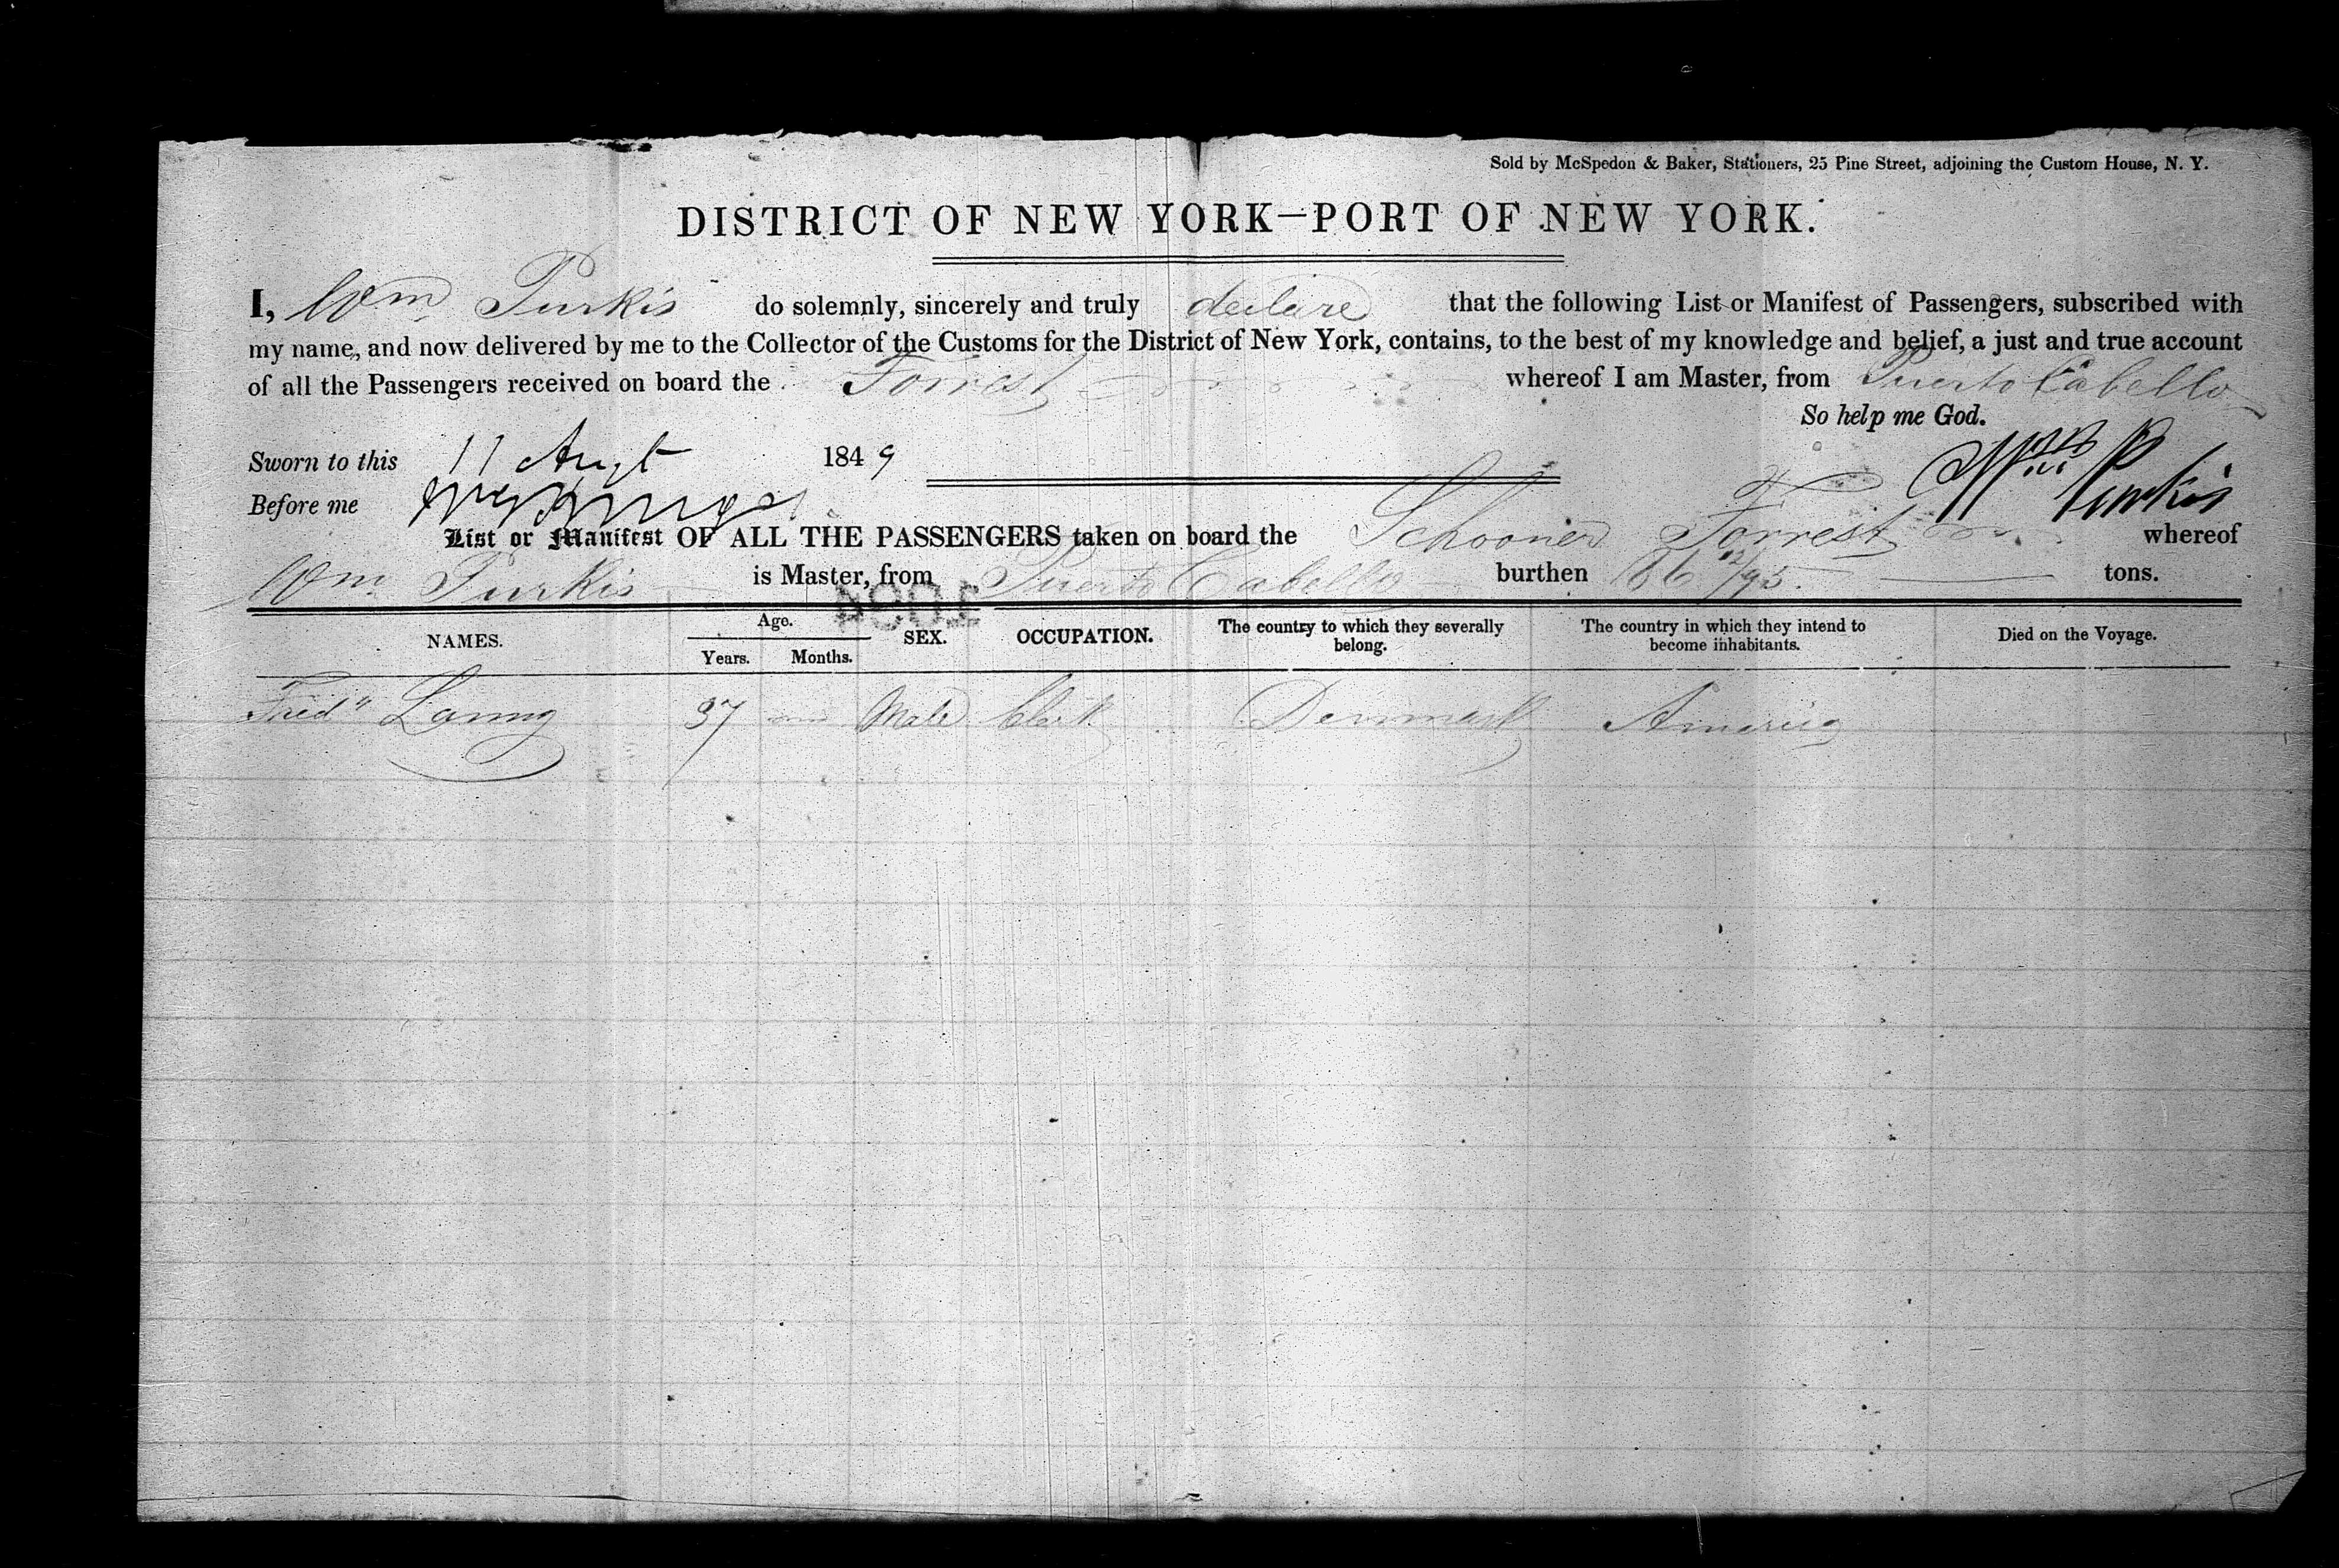 Sold by McSpedon & Baker, Stationers, 25 Pine Street, adjoining the Custom House, N. Y.
DISTRICT OF NEW YORK—PORT OF NEW YORK.
I, Wm Purkis do solemnly, sincerely and truly declare that the following List or Manifest of Passengers, subscribed with
my name, and now delivered by me to the Collector of the Customs for the District of New York, contains, to the best of my knowledge and belief, a just and true account
of all the Passengers received on board the Forrest whereof I am Master, from Puerto Cabello
So help me God.
Sworn to this 11 Augt 1849
Wm Purkis
Before me
List or Manifest OF ALL THE PASSENGERS taken on board the Schooner Forrest whereof
Wm Purkis is Master, from Puerto Cabello burthen 186 12/95 tons.
NAMES. Age. Years. Months. SEX. OCCUPATION. The country to which they severally belong. The country in which they intend to become inhabitants. Died on the Voyage.
Fred" Lanng 37 Male Clerk Denmark America